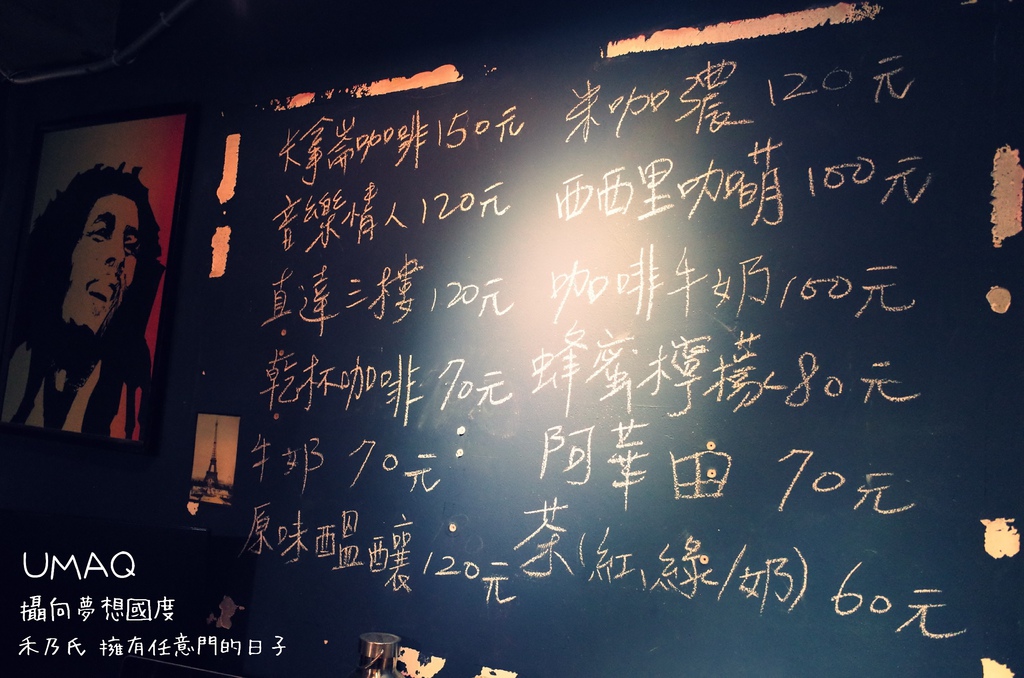 大拿崙咖啡150元
音樂情人120元
直達三樓120元
乾杯咖啡70元
牛奶 70元
原味醞釀120元
米咖濃 120元
西西里咖萌 100元
咖啡牛奶100元
蜂蜜檸檬80元
阿華田 70元
茶(紅、綠/奶) 60元
UMAQ
攝向夢想國度
禾乃氏 擁有任意門的日子